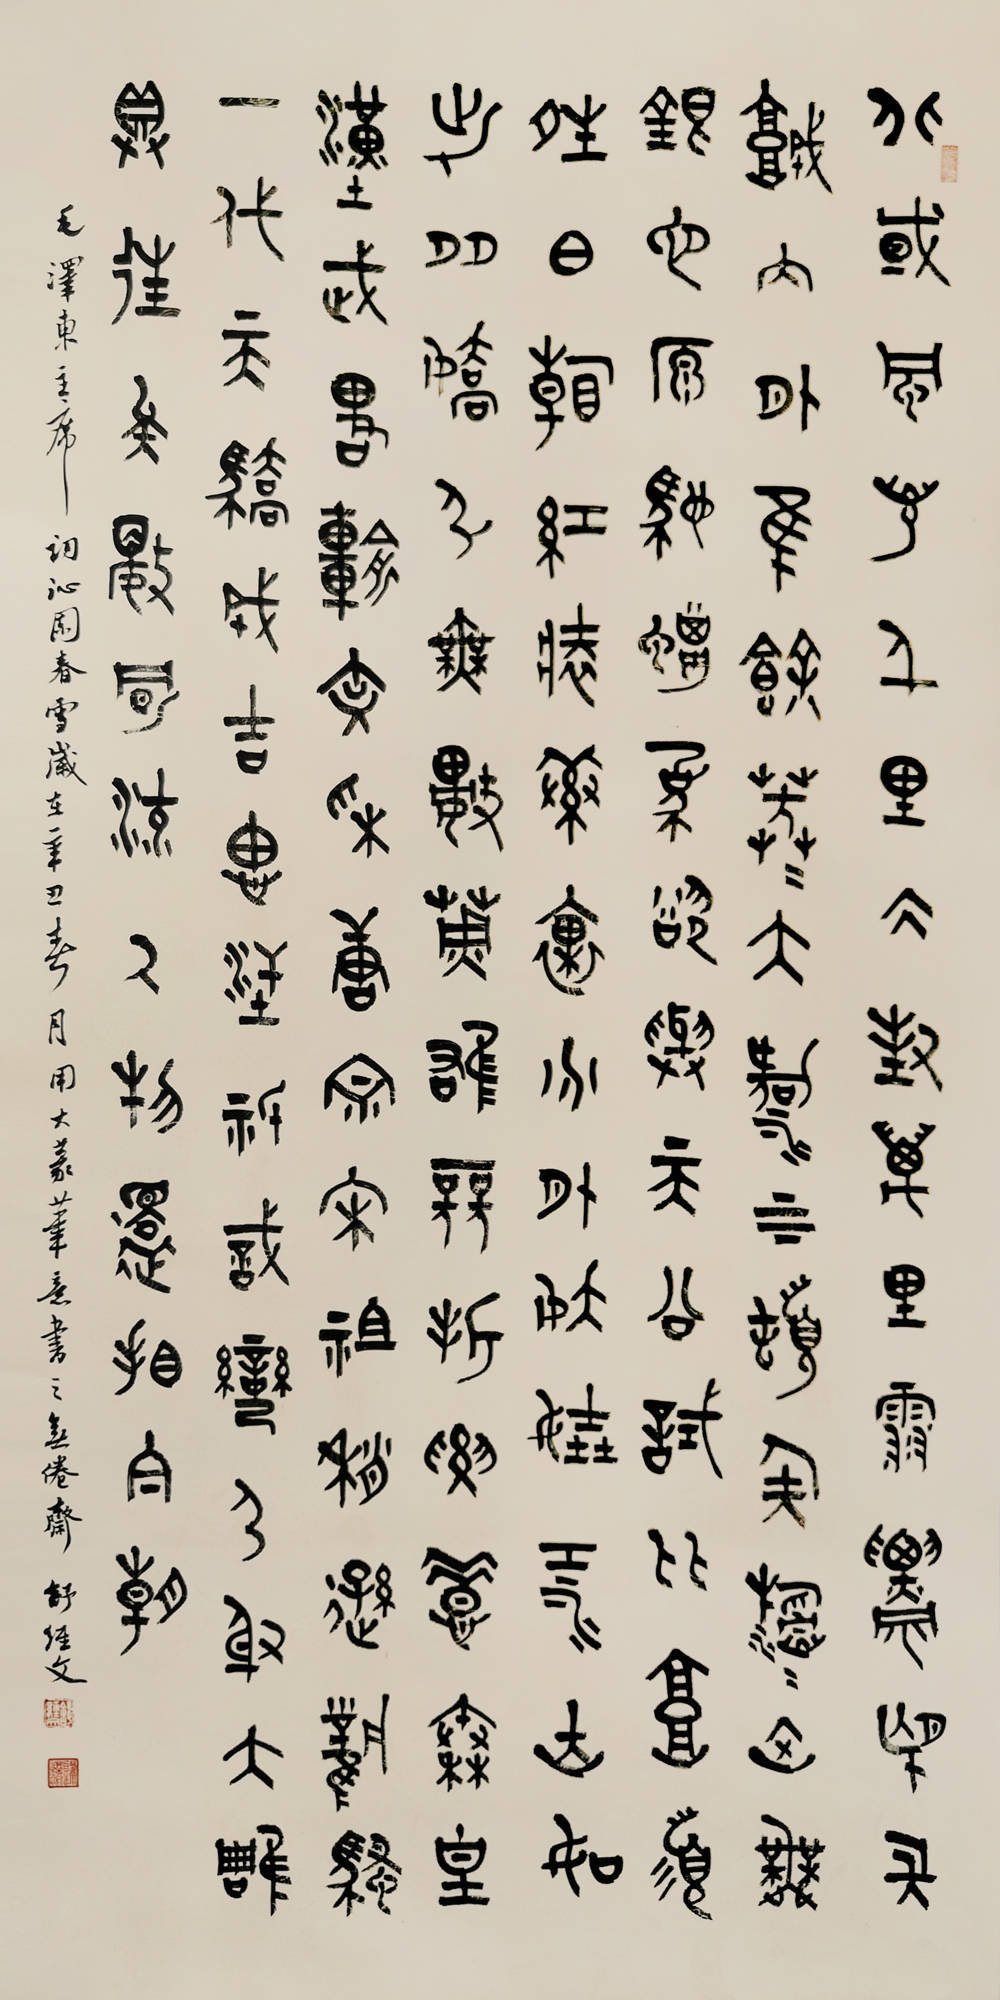 北國風光千里冰封萬里雪飄望長
城內外惟餘莽莽大河上下頓失滔滔山舞
銀蛇原馳蠟象欲與天公試比高須
晴日看紅裝素裹分外妖嬈江山如
此多嬌引無數英雄競折腰惜秦皇
漢武略輸文采唐宗宋祖稍遜風騷
一代天驕成吉思汗祇識彎弓射大雕
俱往矣數風流人物還看今朝
毛澤東主席詞沁園春雪歲在辛丑春月用大篆筆意書之無倦齋舒經文